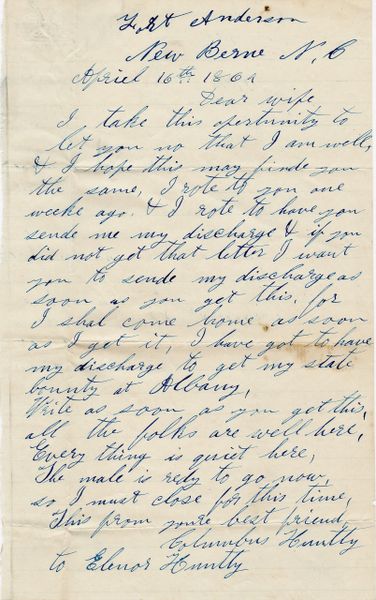 Fort Anderson
New Berne N, C
Apriel 16th 186
Dear wife
I take this opertunity to
let you no that I am well,
& I hope this may finde you
the same, I rote to you one
weeke ago. & I rote to have you
sende me my discharge & if you
did not get that letter I want
you to sende my discharge as
soon as you get this, for
I shal come home as soon
as I get it, I have got to have
my discharge to get my state
bounty at Albany,
Write as soon as you get this,
all the folks are well here,
Every thing is quiet here,
The male is redy to go now,
so I must close for this time,
This from youre best friend
Columbus Huntty
to Elenor Huntty